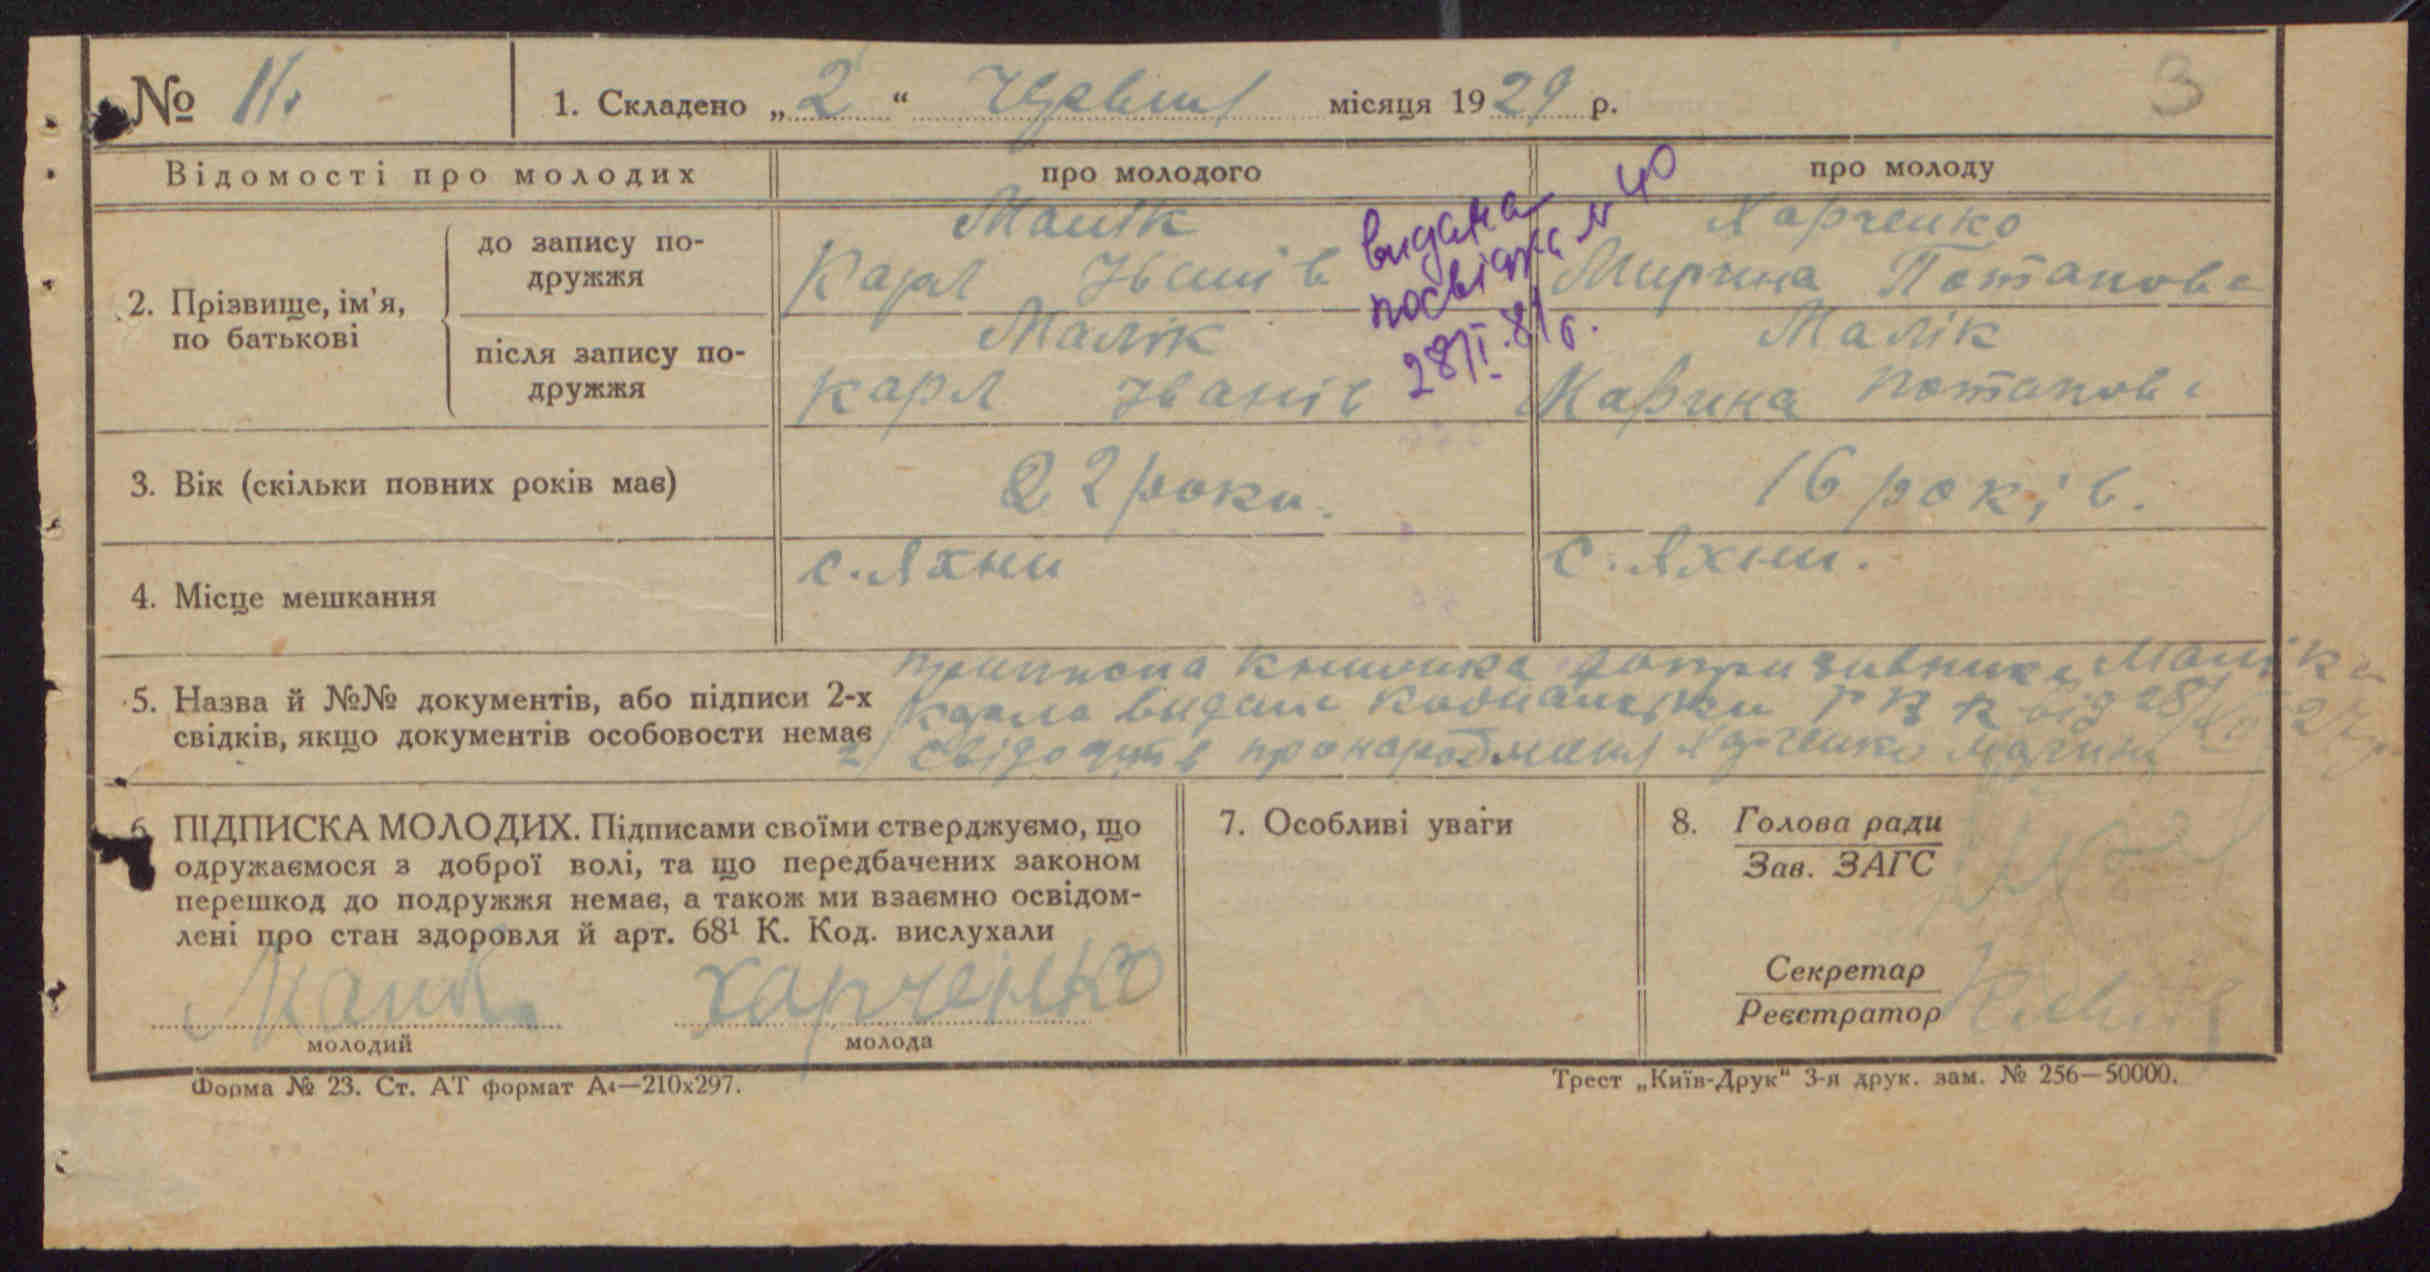 № 11.
3
1. Складено „2“ Червня місяця 1929 р.
Відомості про молодих
про молодого
про молоду
2. Прізвище, ім'я,
по батькові
до запису по-
дружжя
Малік
Карл Іванів
Харченко
Мирина Потапова
після запису по-
дружжя
Малік
Карл Іванів
Малік
Марина Потапова
видана
посвідка № 40
28/I-81р.
3. Вік (скільки повних років має)
22 роки.
16 років.
4. Місце мешкання
с. Яхни
с. Яхни.
5. Назва й №№ документів, або підписи 2-х
свідків, якщо документів особовости немає
приписна книжка допризивника Маліка
Карла видана РВК від 28/
2) свідоцтв про народження Харченко Марини
6. ПІДПИСКА МОЛОДИХ. Підписами своїми стверджуємо, що
одружаємося з доброї волі, та що передбачених законом
перешкод до подружжя немає, а також ми взаємно освідом-
лені про стан здоровля й арт. 68¹ К. Код. вислухали
Малік
Харченко
молодий
молода
7. Особливі уваги
8. Голова ради
Зав. ЗАГС
Секретар
Реєстратор
Форма № 23. Ст. АТ формат А4—210х297.
Трест „Київ-Друк“ 3-я друк. зам. № 256—50000.